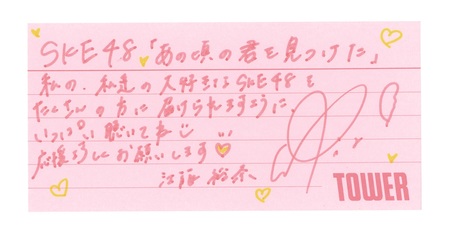 SKE48「あの頃の君を見つけた」
私の、私達の大好きなSKE48を
たくさんの方に届けられますように
いっぱい聴いて
応援よろしくお願いします
TOWER